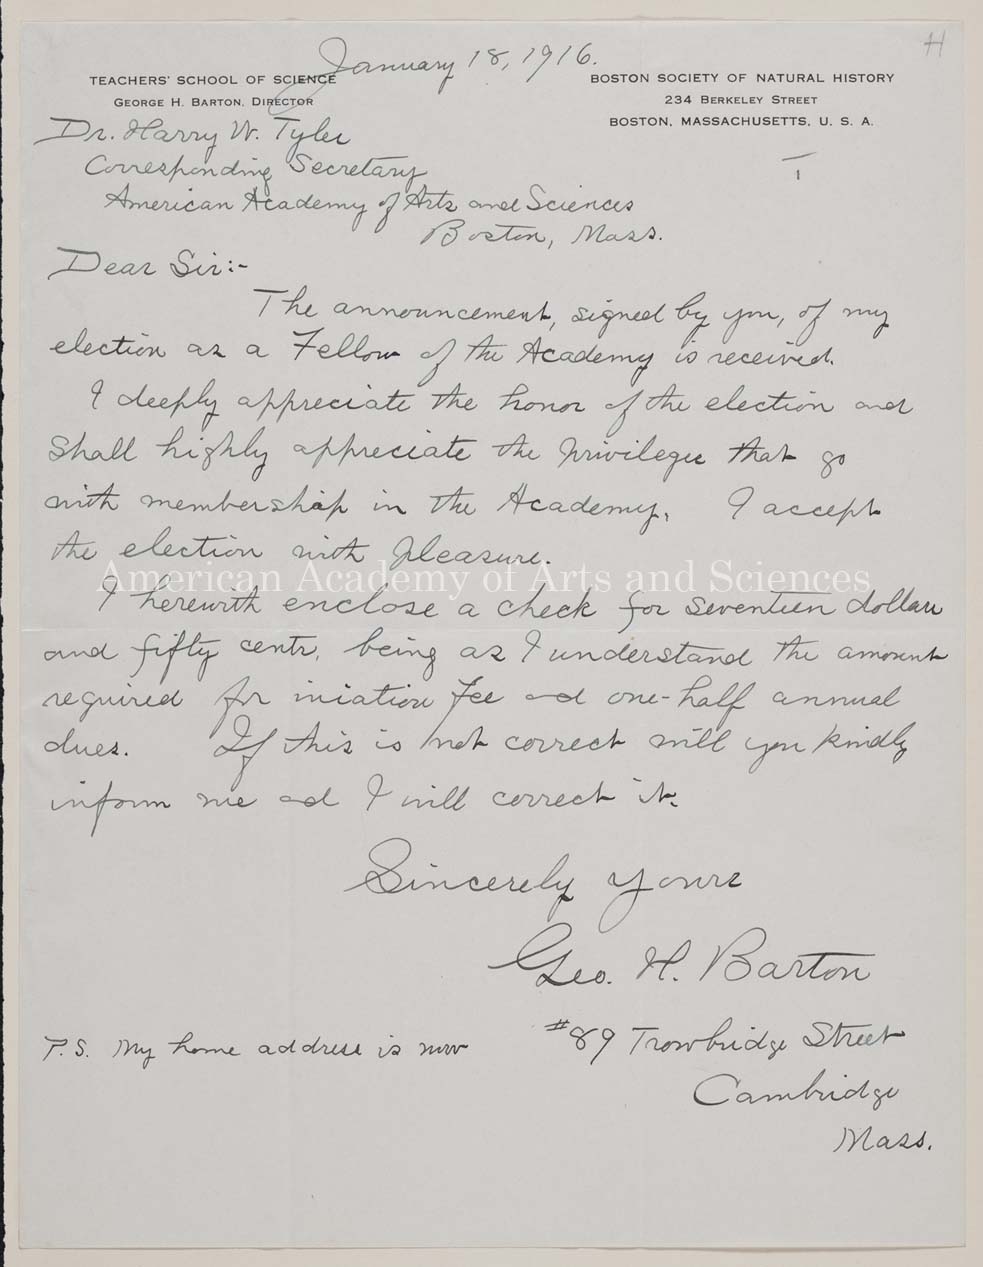 H
January 18, 1916.
TEACHERS' SCHOOL OF SCIENCE
GEORGE H. BARTON, DIRECTOR
BOSTON SOCIETY OF NATURAL HISTORY
234 BERKELEY STREET
BOSTON, MASSACHUSETTS, U. S. A.
Dr. Harry W. Tyler
Corresponding Secretary
American Academy of Arts and Sciences
Boston, Mass.
Dear Sir:-
The announcement, signed by you, of my
election as a Fellow of the Academy is received.
I deeply appreciate the honor of the election and
shall highly appreciate the privileges that go
with membership in the Academy. I accept
the election with pleasure.
American Academy of Arts and Sciences
I herewith enclose a check for seventeen dollars
and fifty cents, being as I understand the amount
required for iniation fee and one-half annual
dues. If this is not correct will you kindly
inform me and I will correct it.
Sincerely yours
Geo. H. Barton
P.S. My home address is now #89 Trowbridge Street
Cambridge
Mass.